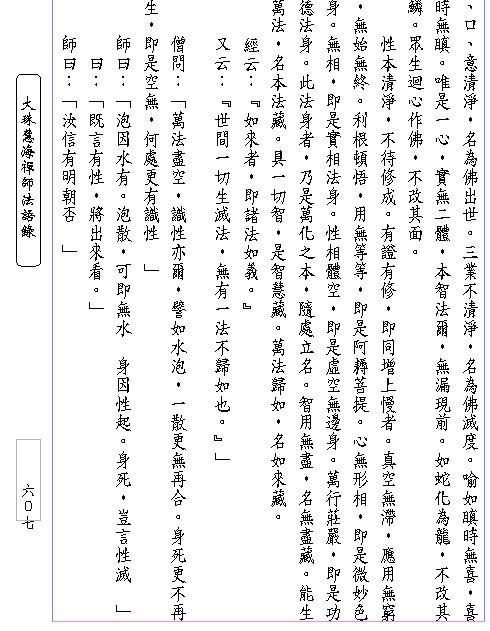 、口、意清淨，名為佛出世。三業不清淨，名為佛滅度。喻如瞋時無喜，喜
時無瞋。唯是一心，實無二體，本智法爾，無漏現前。如蛇化為龍，不改其
鱗。眾生迴心作佛，不改其面。
性本清淨，不待修成。有證有修，即同增上慢者。真空無滯，應用無窮
，無始無終。利根頓悟，用無等等，即是阿耨菩提。心無形相，即是微妙色
身。無相，即是實相法身。性相體空，即是虛空無邊身。萬行莊嚴，即是功
德法身。此法身者，乃是萬化之本，隨處立名。智用無盡，名無盡藏。能生
萬法，名本法藏。具一切智，是智慧藏。萬法歸如，名如來藏。
經云：『如來者，即諸法如義。』
又云：『世間一切生滅法，無有一法不歸如也。』」
僧問：「萬法盡空，識性亦爾，譬如水泡，一散更無再合。身死更不再
生，即是空無，何處更有識性 」
師曰：「泡因水有。泡散，可即無水 身因性起。身死，豈言性滅 」
曰：「既言有性，將出來看。」
師曰：「汝信有明朝否 」
大珠慧海禪師法語錄
六０七